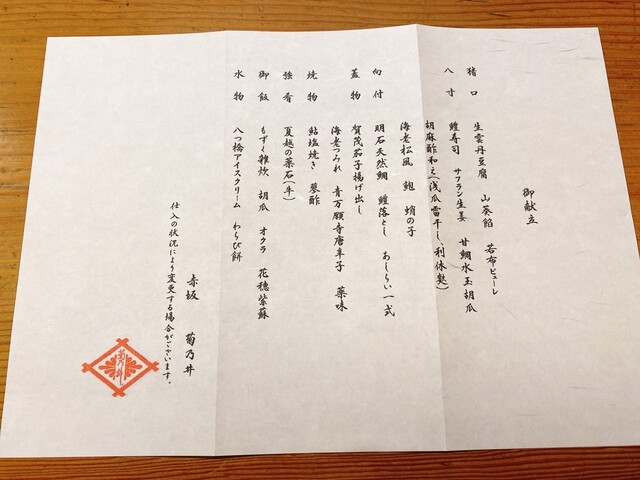 御献立
猪口　生雲丹豆腐　山葵餡　若布ピューレ
八寸　鱧寿司　サフラン生姜　甘鯛水玉胡瓜
胡麻酢和え(浅瓜雷干し、利休麩)
海老松風　鮑　蛸の子
向付　明石天然鯛　鱧落とし　あしらい一式
蓋物　賀茂茄子揚げ出し
海老つみれ　青万願寺唐辛子　薬味
焼物　鮎塩焼き　蓼酢
強肴　夏越の薬石(牛)
御飯　もずく雑炊　胡瓜　オクラ　花穂紫蘇
水物　八つ橋アイスクリーム　わらび餅
赤坂　菊乃井
仕入の状況により変更する場合がございます。
菊乃井